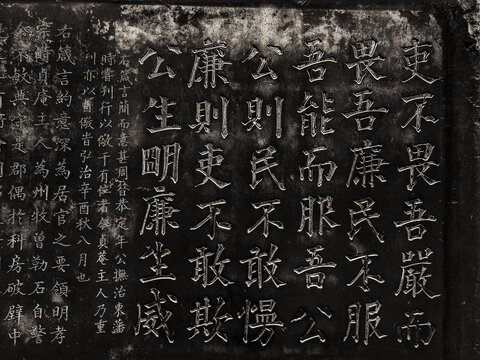 吏不畏吾嚴而
畏吾廉民不服
吾能而服吾公
公則民不敢慢
廉則吏不敢欺
公生明廉生威
右箴言簡而意甚周發恭定年公撫治東藩
時嘗刊行以儆于有位者後貞菴主人乃重
刊亦以自儆皆弘治辛酉秋八月也
右箴言約意深為居官之要領明孝
崇時貞庵主人為州牧曾勒石自警
敏典守是郡偶於科房破壁中